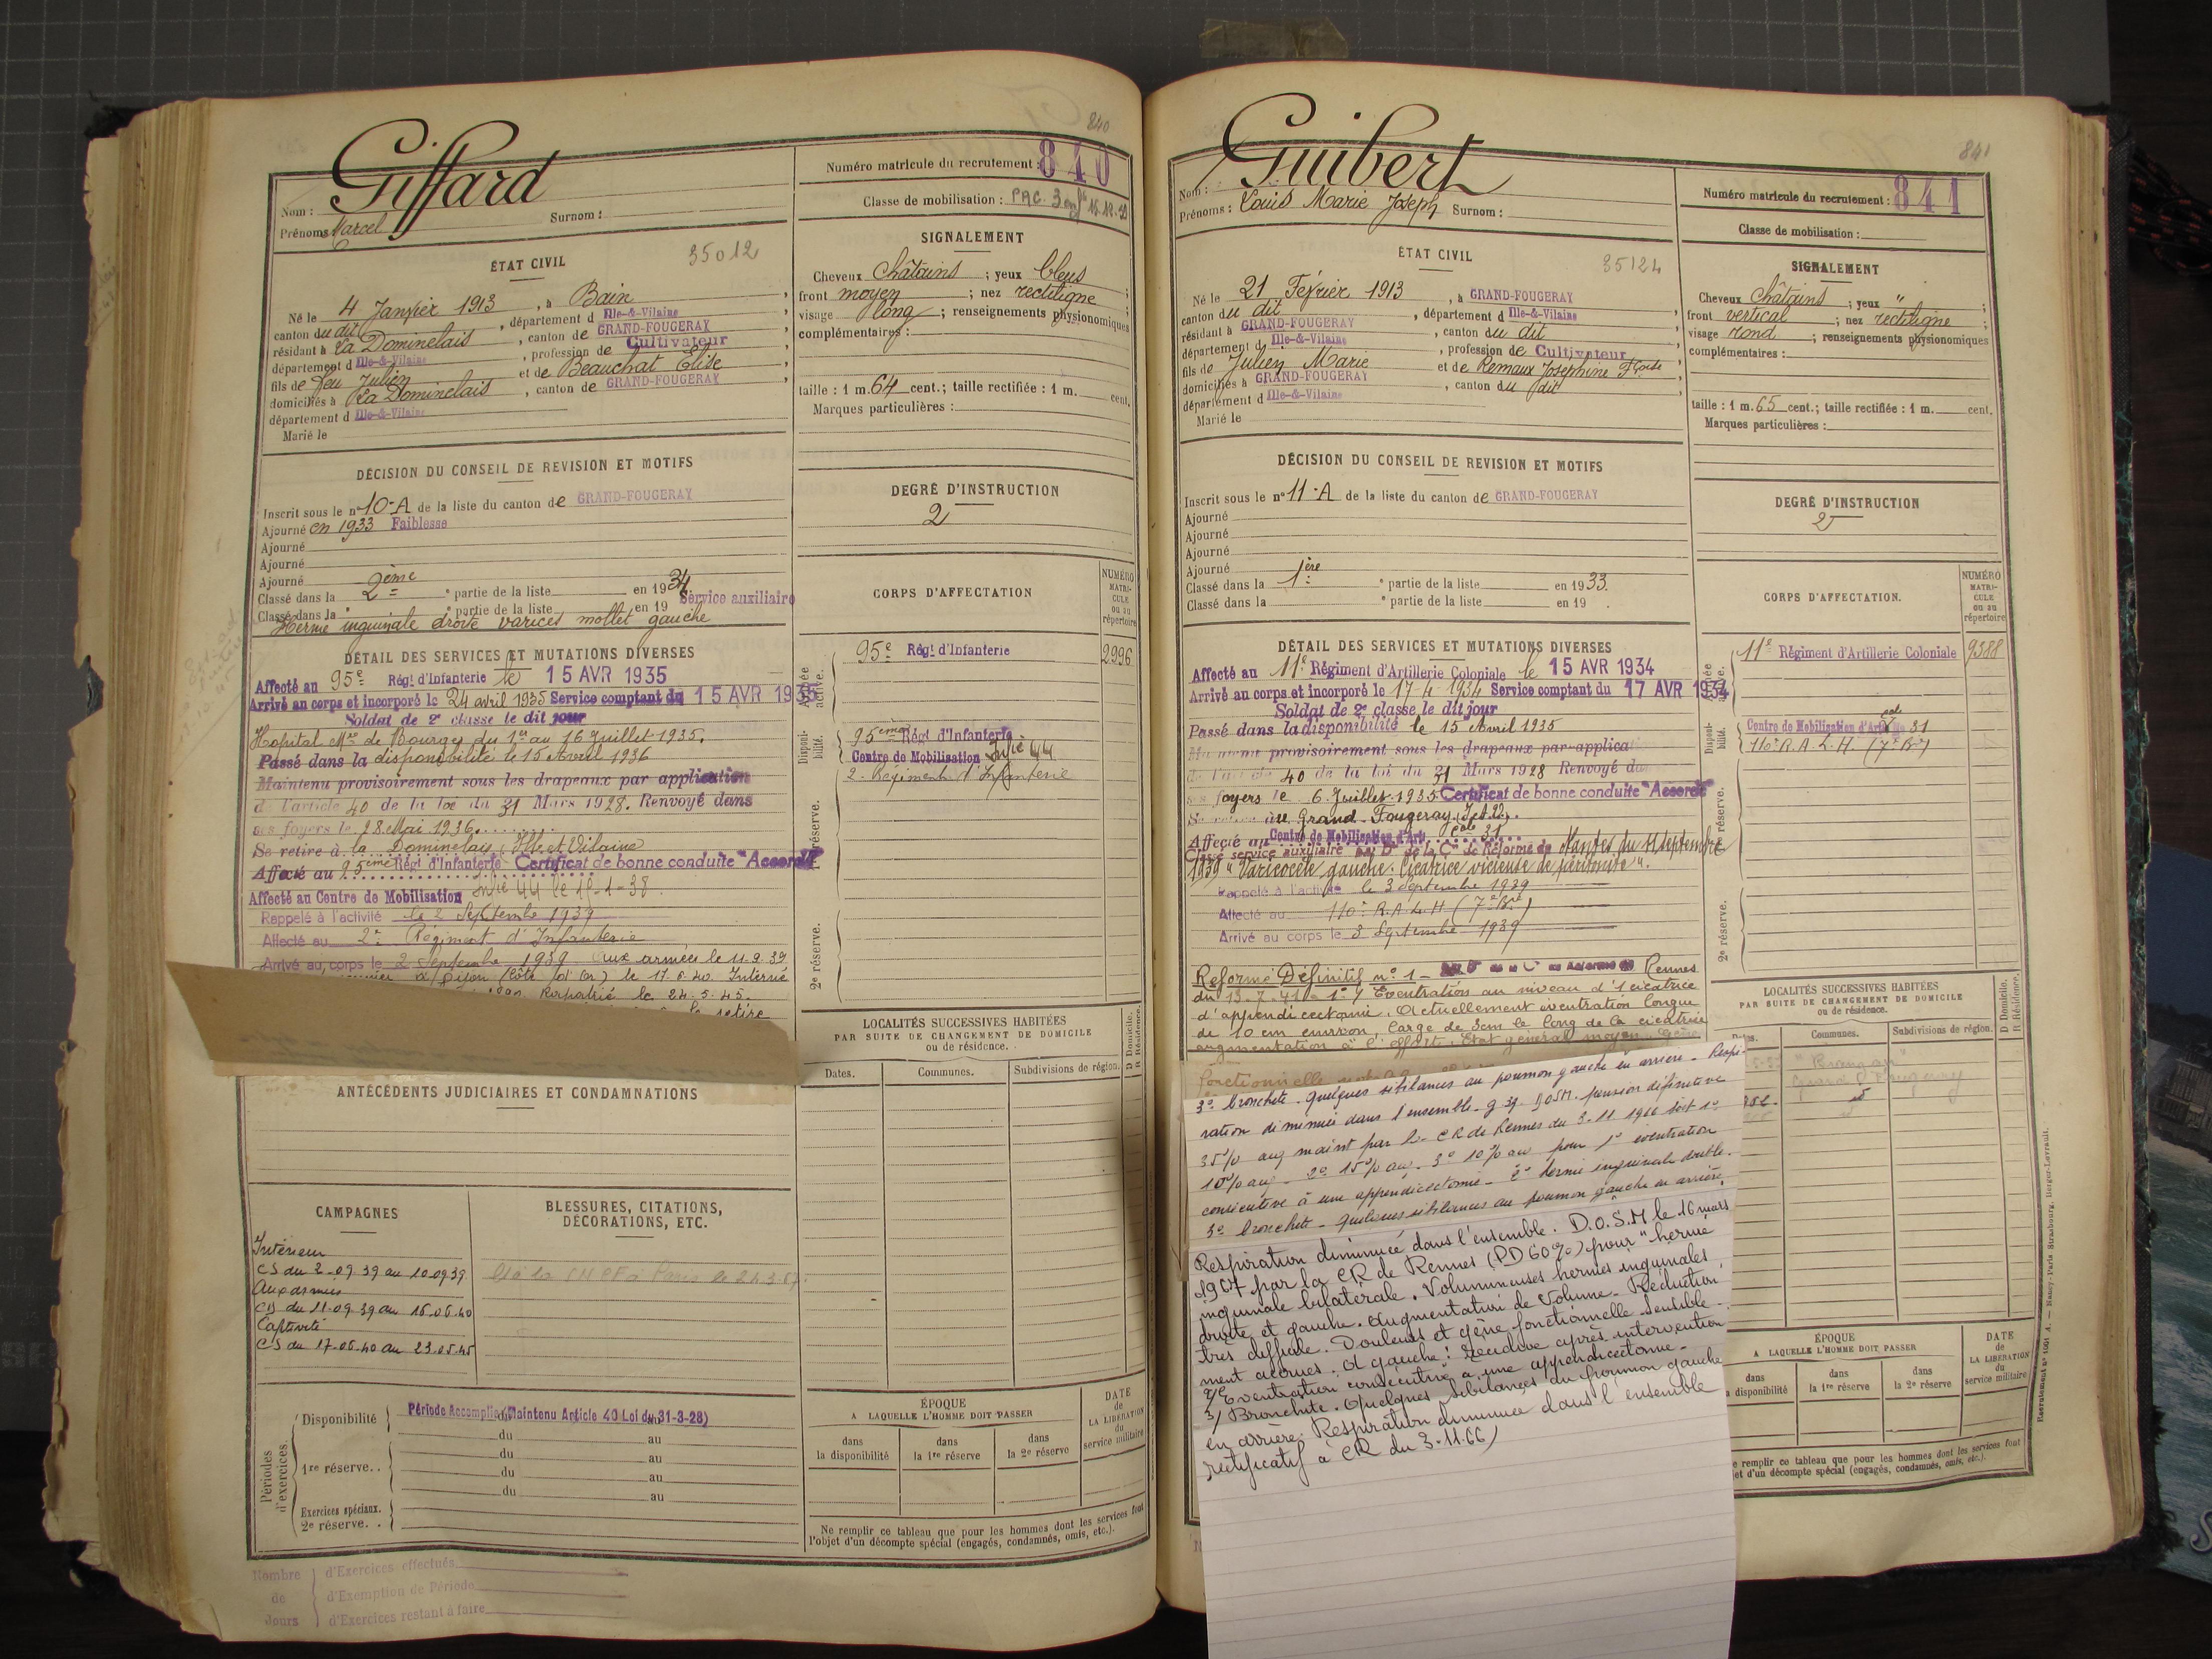 840
Giffard
Nom :
Prénoms Marcel Surnom :
Numéro matricule du recrutement : 840
Classe de mobilisation :
ÉTAT CIVIL
35012
Né le 4 Janvier 1913, à Bain
canton du dit, département d Ille-&-Vilaine
résidant à La Dominelais, canton de GRAND-FOUGERAY
département d Ille-&-Vilaine, profession de Cultivateur
fils de feu Julien et de Beauchat Elise
domiciliés à La Dominelais, canton de GRAND-FOUGERAY
département d Ille-&-Vilaine
Marié le
SIGNALEMENT
Cheveux Châtains ; yeux bleus
front moyen ; nez rectiligne
visage long ; renseignements physionomiques
complémentaires :
taille : 1 m. 64 cent.; taille rectifiée : 1 m. cent.
Marques particulières :
DÉCISION DU CONSEIL DE REVISION ET MOTIFS
Inscrit sous le n° 10-A de la liste du canton de GRAND-FOUGERAY
Ajourné en 1933 Faiblesse
Ajourné
Ajourné
Ajourné
Classé dans la 2ème partie de la liste en 1934
Classé dans la partie de la liste en 19 Service auxiliaire
Hernie inguinale droite varices mollet gauche
DEGRÉ D'INSTRUCTION
2
CORPS D'AFFECTATION
NUMÉRO MATRICULE ou au répertoire
Armée active.
95e Régt d'Infanterie 2996
Disponibilité.
95ème Régt d'Infanterie
Centre de Mobilisation Infie 44
2e Régiment d'Infanterie
1re réserve.
2e réserve.
DÉTAIL DES SERVICES ET MUTATIONS DIVERSES
Affecté au 95e Régt d'Infanterie le 15 AVR 1935
Arrivé au corps et incorporé le 24 avril 1935 Service comptant du 15 AVR 1935
Soldat de 2e classe le dit jour
Hopital Mre de Bourges du 1er au 16 Juillet 1935.
Passé dans la disponibilité le 15 Avril 1936
Maintenu provisoirement sous les drapeaux par application
d l'article 40 de la loi du 31 Mars 1928. Renvoyé dans
ses foyers le 28 Mai 1936
Se retire à la Dominelais, Ille et Vilaine
Affecté au 95ème Régt d'Infanterie Certificat de bonne conduite "Accordé"
Affecté au Centre de Mobilisation Infie 44 le 15-1-38.
Rappelé à l'activité le 2 Septembre 1939
Affecté au 2e Régiment d'Infanterie
Arrivé au corps le 2 Septembre 1939 Aux armées le 11.9.39
à Dijon (Côte d'Or) le 17.6.40 Interné
Rapatrié le 24.5.45.
se retire
ANTÉCÉDENTS JUDICIAIRES ET CONDAMNATIONS
LOCALITÉS SUCCESSIVES HABITÉES
PAR SUITE DE CHANGEMENT DE DOMICILE
ou de résidence.
D Domicile.
R Résidence.
Dates. Communes. Subdivisions de région.
CAMPAGNES
Intérieur
CS du 2.09.39 au 10.09.39
Aux armées
CD du 11.09.39 au 16.06.40
Captivité
CS du 17.06.40 au 23.05.45
BLESSURES, CITATIONS,
DÉCORATIONS, ETC.
Périodes d'exercices.
Disponibilité Période Accomplie (Maintenu Article 40 Loi du 31-3-28)
du au
1re réserve. . du au
du au
du au
Exercices spéciaux.
2e réserve. .
ÉPOQUE
A LAQUELLE L'HOMME DOIT PASSER
dans la disponibilité
dans la 1re réserve
dans la 2e réserve
DATE de LA LIBÉRATION du service militaire
Ne remplir ce tableau que pour les hommes dont les services font
l'objet d'un décompte spécial (engagés, condamnés, omis, etc.).
Nombre de Jours
d'Exercices effectués
d'Exemption de Période
d'Exercices restant à faire
841
Guibert
Nom :
Prénoms : Louis Marie Joseph Surnom :
Numéro matricule du recrutement : 841
Classe de mobilisation :
ÉTAT CIVIL
35124
Né le 21 Février 1913, à GRAND-FOUGERAY
canton du dit, département d Ille-&-Vilaine
résidant à GRAND-FOUGERAY, canton du dit
département d Ille-&-Vilaine, profession de Cultivateur
fils de Julien Marie et de Remaux Joséphine
domiciliés à GRAND-FOUGERAY, canton du dit
département d Ille-&-Vilaine
Marié le
SIGNALEMENT
Cheveux Châtains ; yeux "
front vertical ; nez rectiligne
visage rond ; renseignements physionomiques
complémentaires :
taille : 1 m. 65 cent.; taille rectifiée : 1 m. cent.
Marques particulières :
DÉCISION DU CONSEIL DE REVISION ET MOTIFS
Inscrit sous le n° 11-A de la liste du canton de GRAND-FOUGERAY
Ajourné
Ajourné
Ajourné
Ajourné
Classé dans la 1ère partie de la liste en 1933.
Classé dans la partie de la liste en 19 .
DEGRÉ D'INSTRUCTION
2
CORPS D'AFFECTATION.
NUMÉRO MATRICULE ou au répertoire
11e Régiment d'Artillerie Coloniale 9388
Centre de Mobilisation d'Artie cole 31
110e R.A.L.H. (7e Bie)
Disponibilité.
1re réserve.
2e réserve.
DÉTAIL DES SERVICES ET MUTATIONS DIVERSES
Affecté au 11e Régiment d'Artillerie Coloniale le 15 AVR 1934
Arrivé au corps et incorporé le 17 4 1934 Service comptant du 17 AVR 1934
Soldat de 2e classe le dit jour
Passé dans la disponibilité le 15 Avril 1935
Maintenu provisoirement sous les drapeaux par applicat
de l'article 40 de la loi du 31 Mars 1928 Renvoyé da
ses foyers le 6 Juillet 1935 Certificat de bonne conduite "Accordé"
Se retire à Grand-Fougeray (I.&V.).
Affecté au Centre de Mobilisation d'Art cole 31
Classé service auxiliaire par Don de la Con de Réforme de Nantes du 11 septembre
1939 "Varicocèle gauche. Cicatrice vicieuse de péritonite".
Rappelé à l'activité le 3 Septembre 1939
Affecté au 110e R.A.L.H (7e Bie)
Arrivé au corps le 3 Septembre 1939
Réformé Définitif n° 1 - Rennes
du 13.7.41 - 1°/ Eventration au niveau d'1 cicatrice
d'appendicectomie. Actuellement éventration longue
de 10 cm environ, large de 3cm le long de la cicatrice
augmentation à l'effort. Etat général moyen. Gêne
fonctionnelle
3° bronchite. Quelques sibilances au poumon gauche en arrière - Respi-
ration diminuée dans l'ensemble. DOSM. pension définitive
35% aug maint par la CR de Rennes du 3.11.1966 soit 1°
10% au - 2° 15% au - 3° 10% au pour 1° éventration
consécutive à une appendicectomie - 2° hernie inguinale double.
3° bronchite - Quelques sibilances au poumon gauche en arrière,
Respiration diminuée dans l'ensemble. D.O.S.M le 16 mars
1967 par la CR de Rennes (PD 60%) pour "hernie
inguinale bilatérale. Volumineuses hernies inguinales
droite et gauche. Augmentation de Volume - Réduction
très difficile. Douleurs et gêne fonctionnelle sensible-
ment accrues. A gauche : récidive après intervention
2/ Eventration consécutive à une appendicectomie -
3/ Bronchite. Quelques sibilances du poumon gauche
en arrière. Respiration diminuée dans l'ensemble
rectificatif à CR du 3.11.66)
LOCALITÉS SUCCESSIVES HABITÉES
PAR SUITE DE CHANGEMENT DE DOMICILE
ou de résidence.
D Domicile.
R Résidence.
Communes. Subdivisions de région.
Grand Fougeray
ÉPOQUE
A LAQUELLE L'HOMME DOIT PASSER
dans disponibilité
dans la 1re réserve
dans la 2e réserve
DATE de LA LIBÉRATION du service militaire
e remplir ce tableau que pour les hommes dont les services font
jet d'un décompte spécial (engagés, condamnés, omis, etc.).
Recrutement n° 1001 A. — Nancy-Paris-Strasbourg, Berger-Levrault.